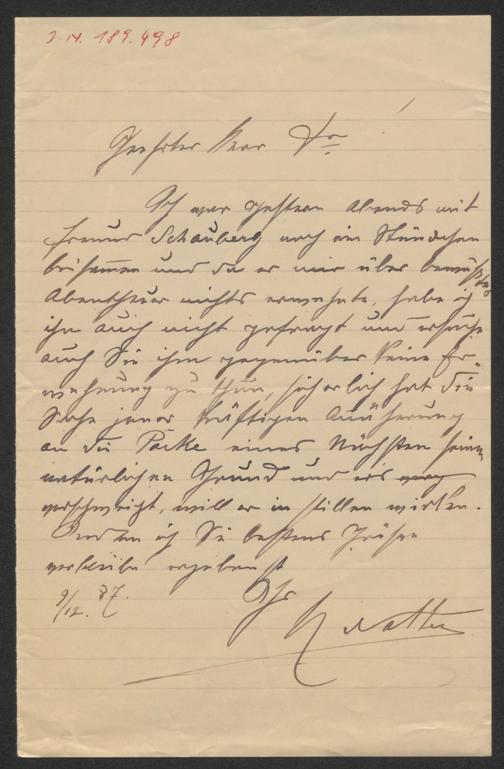 J. N. 189.498
Geehrter Herr Dr !
Ich war gestern Abends mit
Freund Schauberg noch ein Stündchen
beisammen und da er mir über bewußtes
Abentheuer nichts erwähnte, habe ich
ihn auch nicht gefragt und ersuche
auch Sie ihm gegenüber keine Er-
wähnung zu thun, sicherlich hat die
Sache jener kräftigen Äußerung
an die Backe eines Nächsten seinen
natürlichen Grund und er's
verschweigt, will er im stillen wirken.
ich Sie bestens Grüße
verbleibe ergebenst
9/12. 87. Ihr